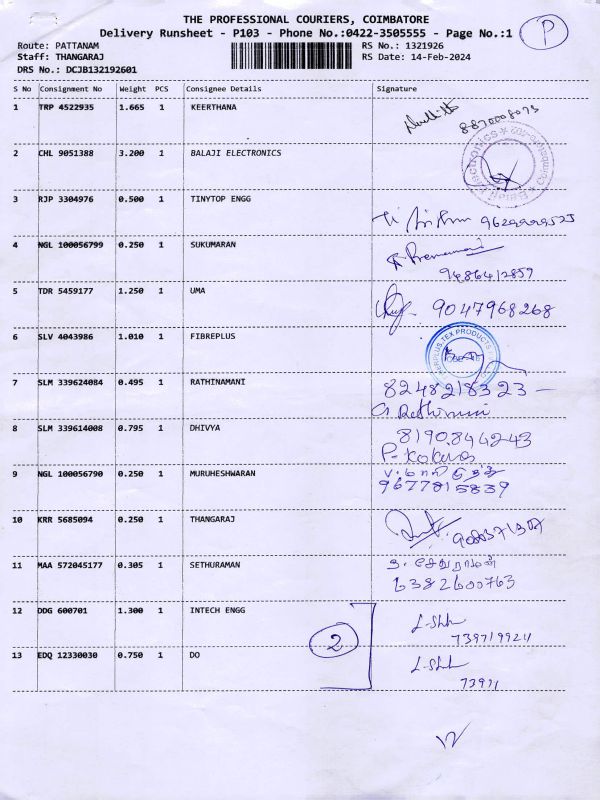 THE PROFESSIONAL COURIERS, COIMBATORE
Delivery Runsheet - P103 - Phone No.:0422-3505555 - Page No.:1
P
Route: PATTANAM RS No.: 1321926
Staff: THANGARAJ RS Date: 14-Feb-2024
DRS No.: DCJB132192601
S No Consignment No Weight PCS Consignee Details Signature
1 TRP 4522935 1.665 1 KEERTHANA
8870008073
2 CHL 9051388 3.200 1 BALAJI ELECTRONICS
3 RJP 3304976 0.500 1 TINYTOP ENGG
4 NGL 100056799 0.250 1 SUKUMARAN
9486412859
5 TDR 5459177 1.250 1 UMA
9047968268
6 SLV 4043986 1.010 1 FIBREPLUS
7 SLM 339624084 0.495 1 RATHINAMANI
8248218323
8 SLM 339614008 0.795 1 DHIVYA
8190844243
9 NGL 100056790 0.250 1 MURUHESHWARAN
9677815839
10 KRR 5685094 0.250 1 THANGARAJ
11 MAA 572045177 0.305 1 SETHURAMAN
6382600763
12 DDG 600701 1.300 1 INTECH ENGG
739719924
2
13 EDQ 12330030 0.750 1 DO
73971